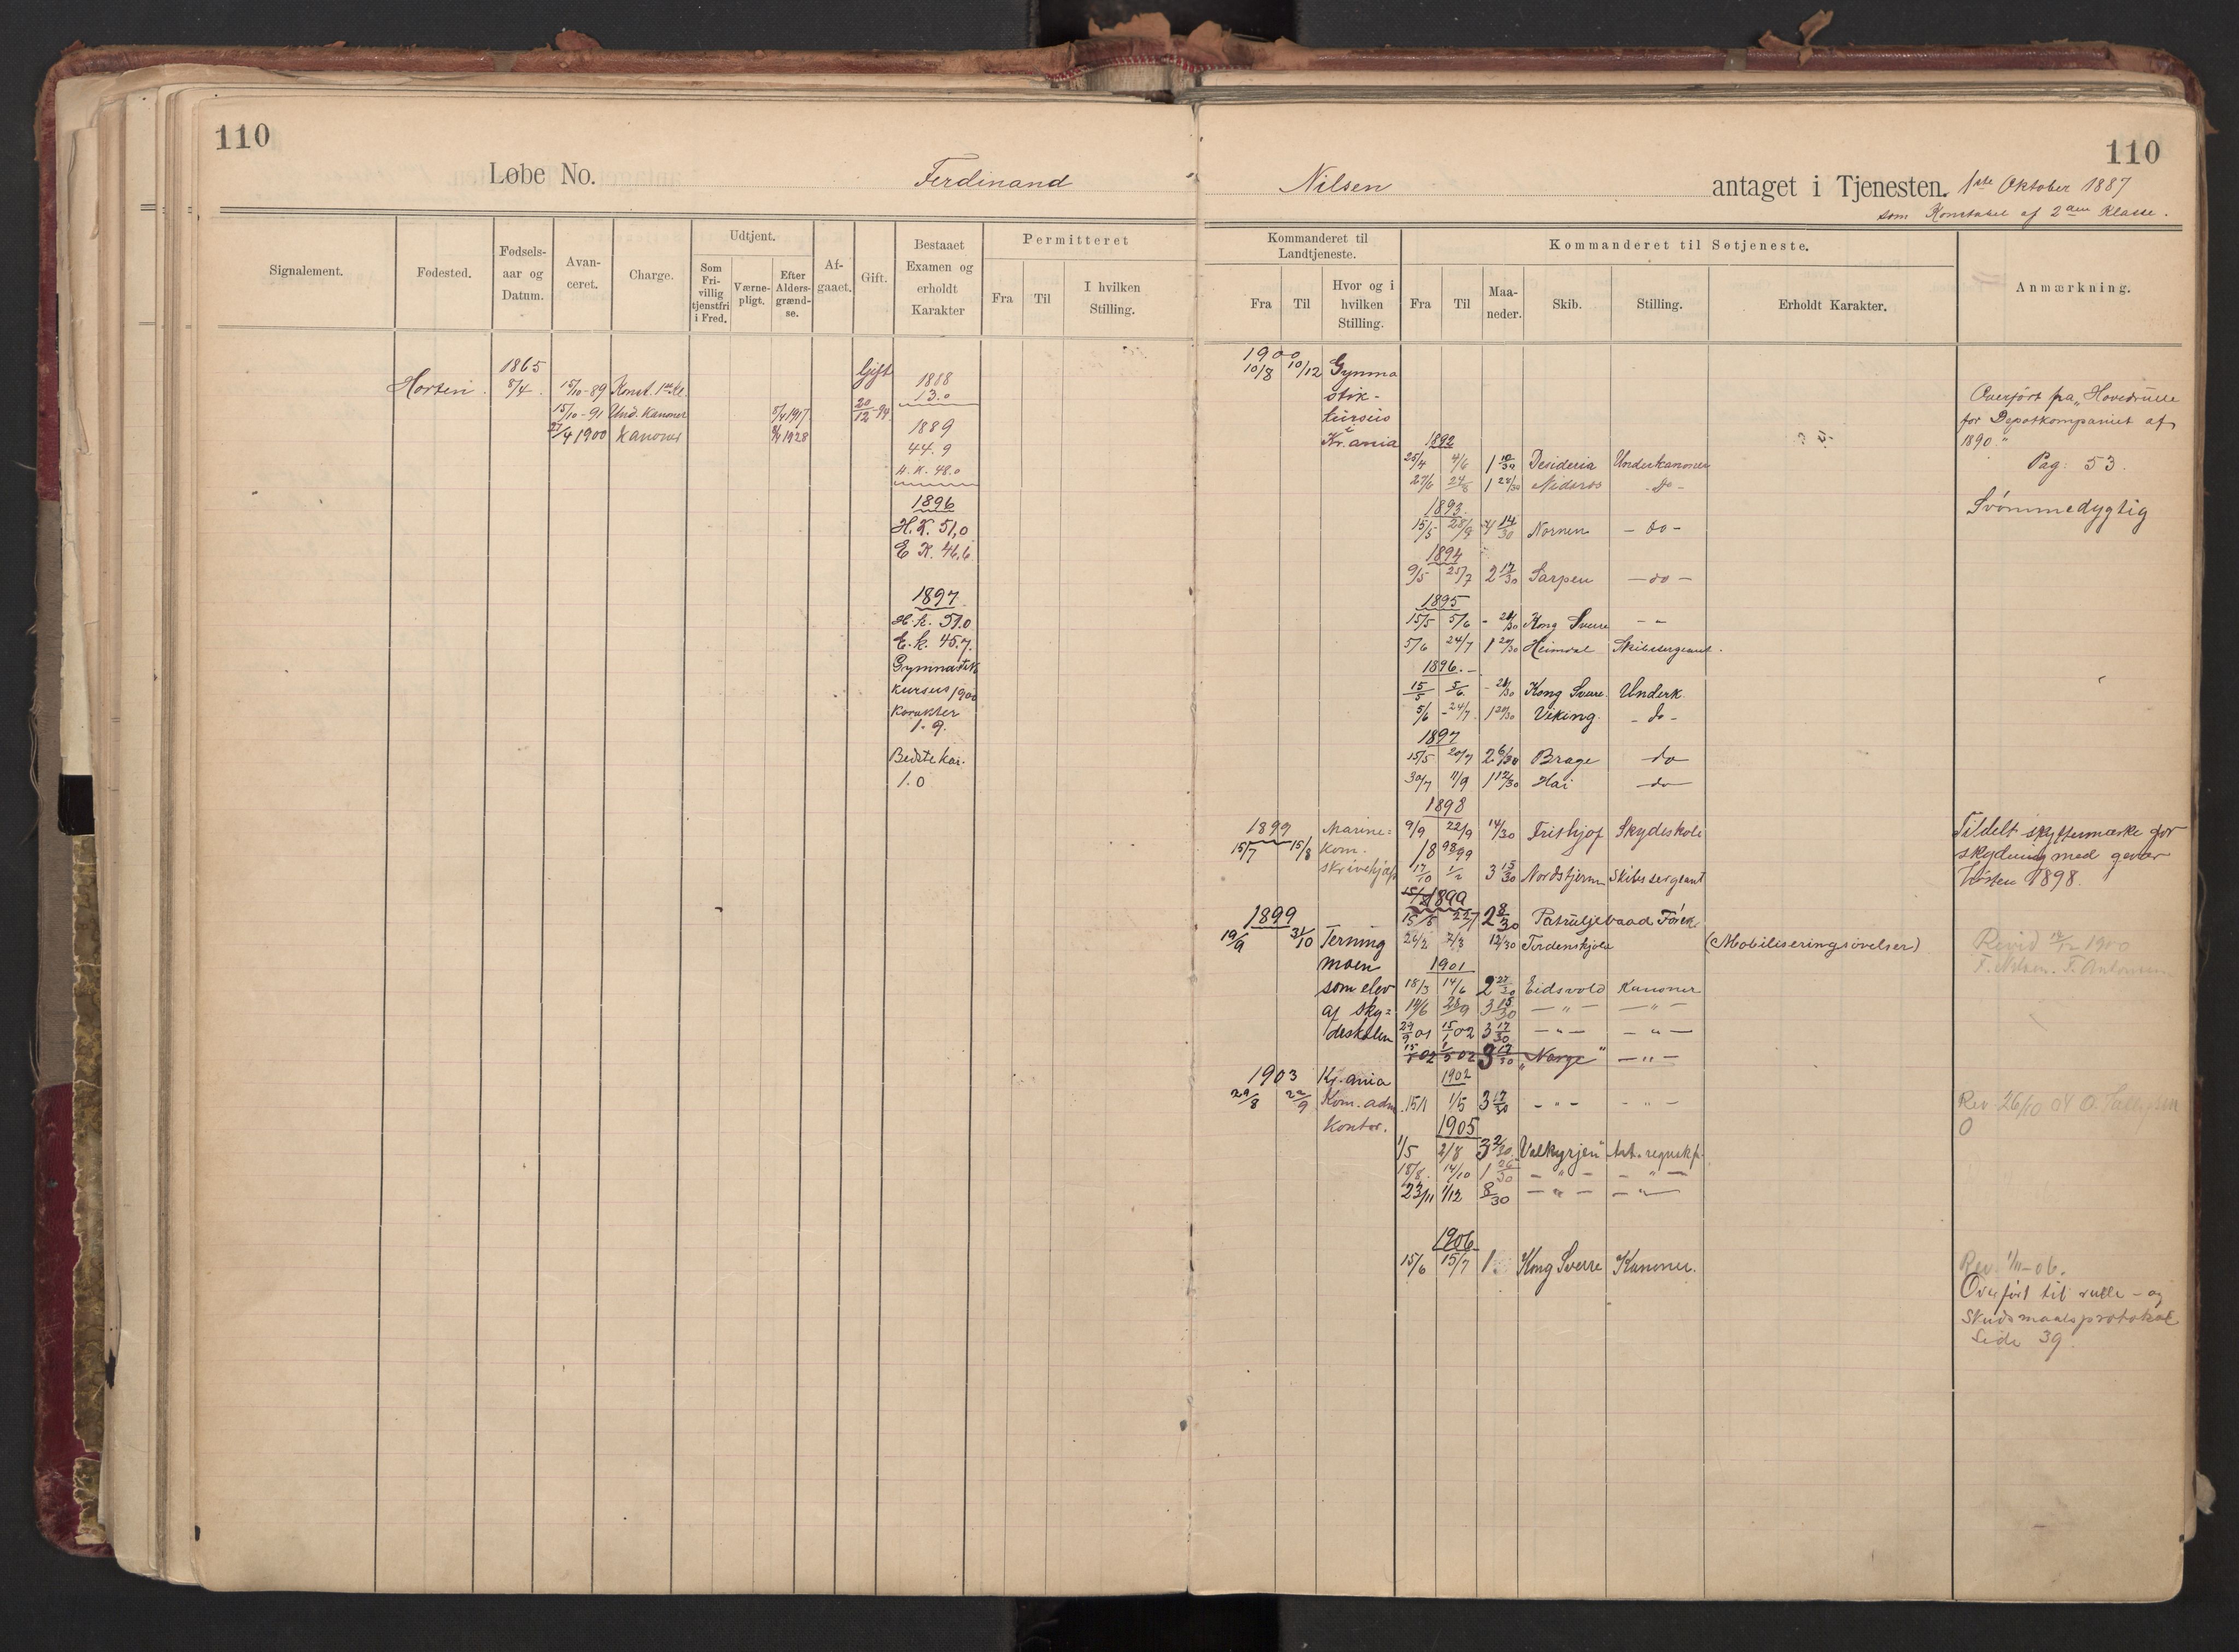 110
Løbe No. Ferdinand
Signalement.
Fødested.
Fødsels-
aar og
Datum.
Avan-
ceret.
Charge.
Udtjent.
Som
Fri-
villig
tjenstfri
i Fred.
Værne-
pligt.
Efter
Alders-
grænd-
se.
Af-
gaaet.
Gift.
Bestaaet
Examen og
erholdt
Karakter
Permitteret
Fra
Til
I hvilken
Stilling.
Horten.
1865
8/4
15/10-89 Konst. 1ste Kl.
15/10-91 Und. Kanoner
27/4 1900 Kanoner
8/4 1917
8/4 1928
Gift
20/12 94
1888
13.0
1889
44.9
H. K. 48.0
1896
H. K. 51,0
E K. 46,6
1897
H. k. 51.0
E. k. 45.7.
Gymnastik
kursus 1900
Karakter
1.9.
Bedste kar.
1.0
110
Nilsen antaget i Tjenesten. 1ste Oktober 1887
som Konstabel af 2den Klasse.
Kommanderet til
Landtjeneste.
Fra
Til
Hvor og i
hvilken
Stilling.
Kommanderet til Søtjeneste.
Fra
Til
Maa-
neder.
Skib.
Stilling.
Erholdt Karakter.
Anmærkning.
1900
10/8 10/12 Gymna
stik-
kursus
i
Kr.ania
1899
15/7 15/8 Marine=
kom.
skrivehjælp
1899
19/9 31/10 Terning
moen
som elev
af sky=
deskolen
1903
29/8 22/9 Kr.ania
Kom. adm.
kontor.
1892
25/4 4/6 1 10/30 Desideria Underkanoner
27/6 24/8 1 28/30 Nidaros - do -
1893.
15/5 28/9 4 14/30 Nornen - do -
1894
9/5 25/7 2 17/30 Sarpen - do -
1895
15/5 5/6 - 21/30 Kong Sverre - " -
5/6 24/7 1 20/30 Heimdal Skibssergeant.
1896.-
15/5 5/6 - 21/30 Kong Sverre. Underk.
5/6 - 24/7 1 20/30 Viking. - do -
1897
15/5 20/7 2 6/30 Brage do
30/7 11/9 1 12/30 Hai do
1898
9/9 22/9 14/30 Frithjof Skydeskole
1898 99
17/10 1/2 3 15/30 Nordstjernen Skibssergeant
1899
15/5 22/7 2 8/30 Patruljebaad Fører
26/2 7/3 12/30 Tordenskjold (Mobiliseringsøvelser)
1901
18/3 14/6 2 27/30 Eidsvold Kanoner
14/6 28/9 3 15/30 - " - - " -
29/9 01 15/1 02 3 17/30 - " - - " -
15/1 02 1/5 02 3 17/30 "Norge" - " -
1902
15/1 1/5 3 17/30 - " - - " -
1905
1/5 2/8 3 2/30 Valkyrjen" Art. regnskf.
18/8. 14/10 1 26/30 - " - - " -
23/11 1/12 8/30 - " - - " -
1906
15/6 15/7 1 Kong Sverre Kanoner.
Overført fra "Hovedrulle
for Depotkompaniet af
1890."
Pag: 53.
Svømmedygtig
Tildelt skyttermærke for
skydning med gevær
høsten 1898.
Revid 12/12 1900
F. Nilsen. F. Antonsen
Rev. 26/10 04 O.
O
Rev. 1/11-06.
Overført til rulle - og
Skudsmaalsprotokol
Side 39.